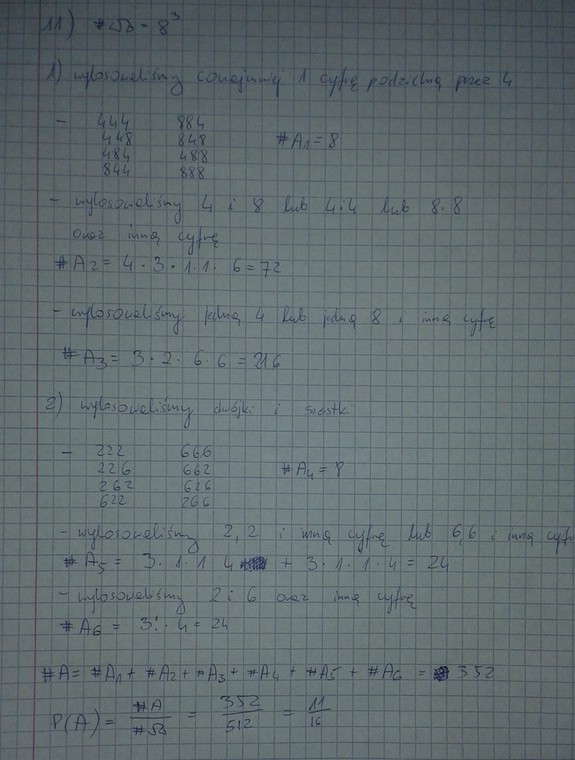 11) #Ω = 8³
1) wylosowaliśmy conajmniej 1 cyfrę podzielną przez 4
- 444 884
448 848 #A₁ = 8
484 488
844 888
- wylosowaliśmy 4 i 8 lub 4i4 lub 8i8
oraz inną cyfrę
#A₂ = 4 · 3 · 1 · 1 · 6 = 72
- wylosowaliśmy jedną 4 lub jedną 8 i inną cyfrę
#A₃ = 3 · 2 · 6 · 6 = 216
2) wylosowaliśmy dwójki i szóstki
- 222 666
226 662 #A₄ = 8
262 626
622 266
- wylosowaliśmy 2,2 i inną cyfrę lub 6,6 i inną cyfr
#A₅ = 3 · 1 · 1 · 4 + 3 · 1 · 1 · 4 = 24
- wylosowaliśmy 2 i 6 oraz inną cyfrę
#A₆ = 3! · 4 = 24
#A = #A₁ + #A₂ + #A₃ + #A₄ + #A₅ + #A₆ = 352
P(A) = #A/#Ω = 352/512 = 11/16